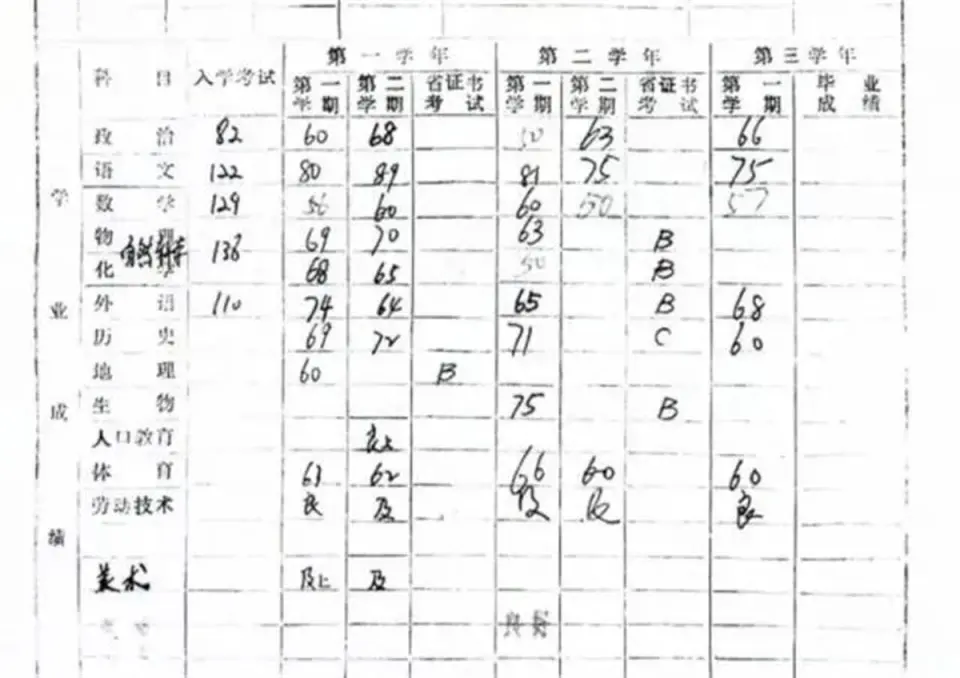 第一学年 第二学年 第三学年
科目 入学考试 第一学期 第二学期 省证书考试 第一学期 第二学期 省证书考试 第一学期 毕业成绩
学业成绩
政治 82 60 68 50 63 66
语文 122 80 89 81 75 75
数学 129 56 60 60 50 57
物理 69 70 63 B
自然科学 136
化学 68 65 50 B
外语 110 74 64 65 B 68
历史 69 72 71 C 60
地理 60 B
生物 75 B
人口教育 良上
体育 63 62 66 60 60
劳动技术 良 及 及 及 良
美术 及上 及
良好